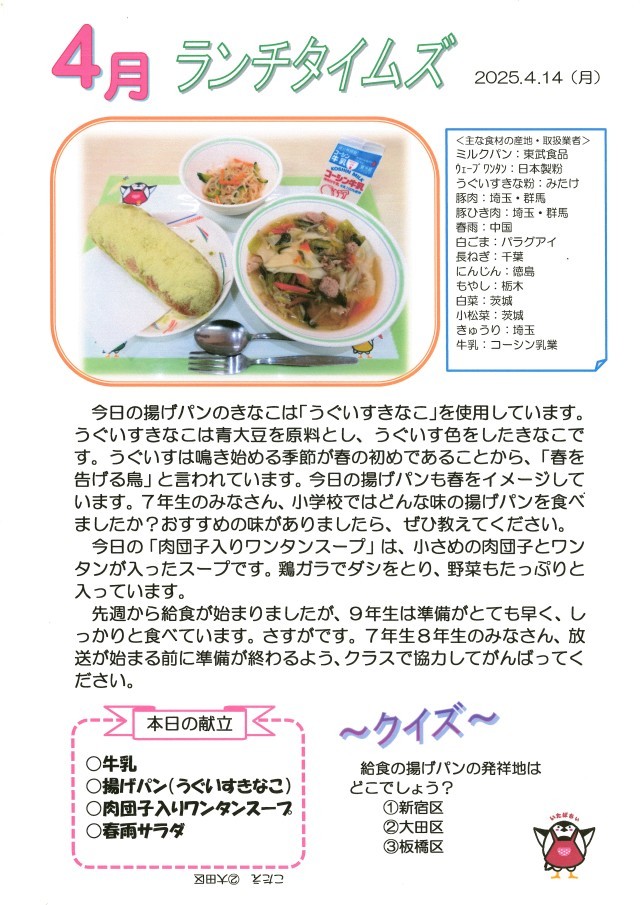 4月 ランチタイムズ 2025.4.14（月）
＜主な食材の産地・取扱業者＞
ミルクパン：東武食品
ｳｪｰﾌﾞﾜﾝﾀﾝ：日本製粉
うぐいすきな粉：みたけ
豚肉：埼玉・群馬
豚ひき肉：埼玉・群馬
春雨：中国
白ごま：パラグアイ
長ねぎ：千葉
にんじん：徳島
もやし：栃木
白菜：茨城
小松菜：茨城
きゅうり：埼玉
牛乳：コーシン乳業
牛乳
コーシン牛乳
今日の揚げパンのきなこは「うぐいすきなこ」を使用しています。
うぐいすきなこは青大豆を原料とし、うぐいす色をしたきなこで
す。うぐいすは鳴き始める季節が春の初めであることから、「春を
告げる鳥」と言われています。今日の揚げパンも春をイメージして
います。７年生のみなさん、小学校ではどんな味の揚げパンを食べ
ましたか？おすすめの味がありましたら、ぜひ教えてください。
今日の「肉団子入りワンタンスープ」は、小さめの肉団子とワン
タンが入ったスープです。鶏ガラでダシをとり、野菜もたっぷりと
入っています。
先週から給食が始まりましたが、９年生は準備がとても早く、し
っかりと食べています。さすがです。７年生８年生のみなさん、放
送が始まる前に準備が終わるよう、クラスで協力してがんばってく
ださい。
本日の献立
○牛乳
○揚げパン（うぐいすきなこ）
○肉団子入りワンタンスープ
○春雨サラダ
～クイズ～
給食の揚げパンの発祥地は
どこでしょう？
①新宿区
②大田区
③板橋区
いたばさぃ
こたえ ②大田区